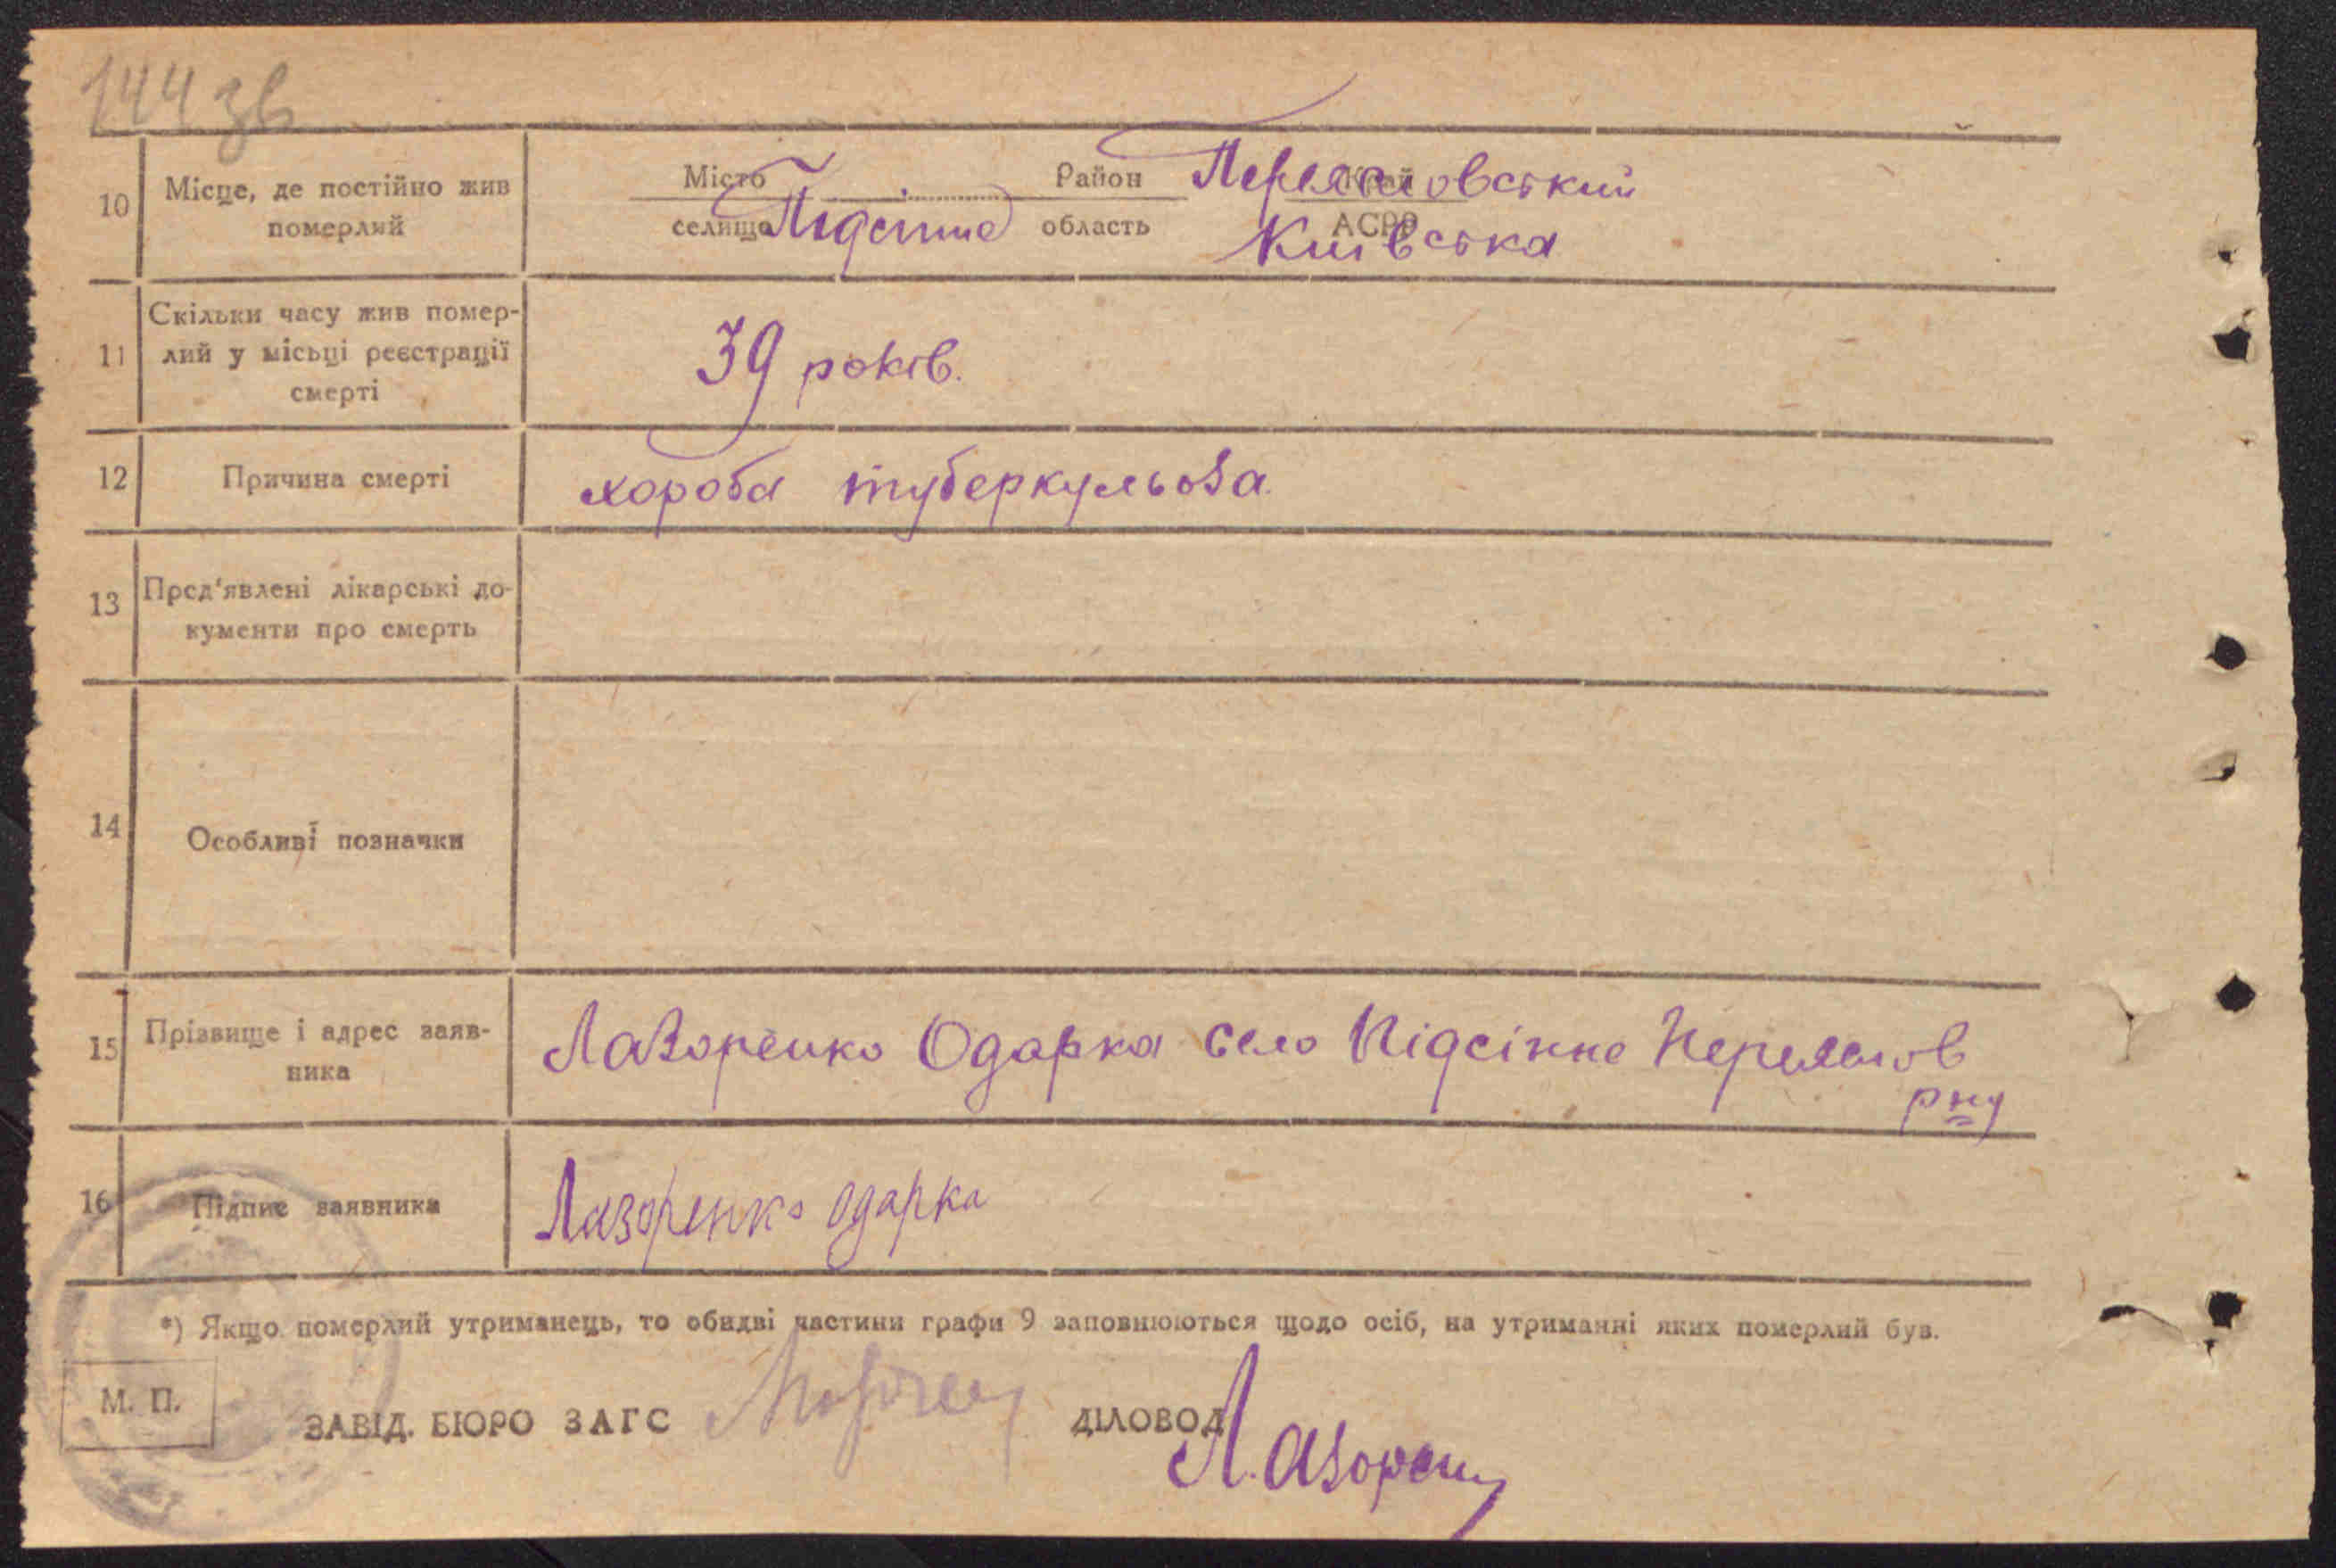 144 зв
10 Місце, де постійно жив померлий
Місто Район Переясловський Край
селище Підсінне область Київська АСРР
11 Скільки часу жив помер-
лий у місьці реєстрації
смерті
39 років.
12 Причина смерті хороба туберкульоза.
13 Пред'явлені лікарські до-
кументи про смерть
14 Особливі позначки
15 Прізвище і адрес заяв-
ника
Лазоренко Одарка село Підсінне Переяслов
рну
16 Підпис заявника Лазоренко Одарка
*) Якщо померлий утриманець, то обидві частини графи 9 заповнюються щодо осіб, на утриманні яких померлий був.
М. П.
ЗАВІД. БЮРО ЗАГС ДІЛОВОД